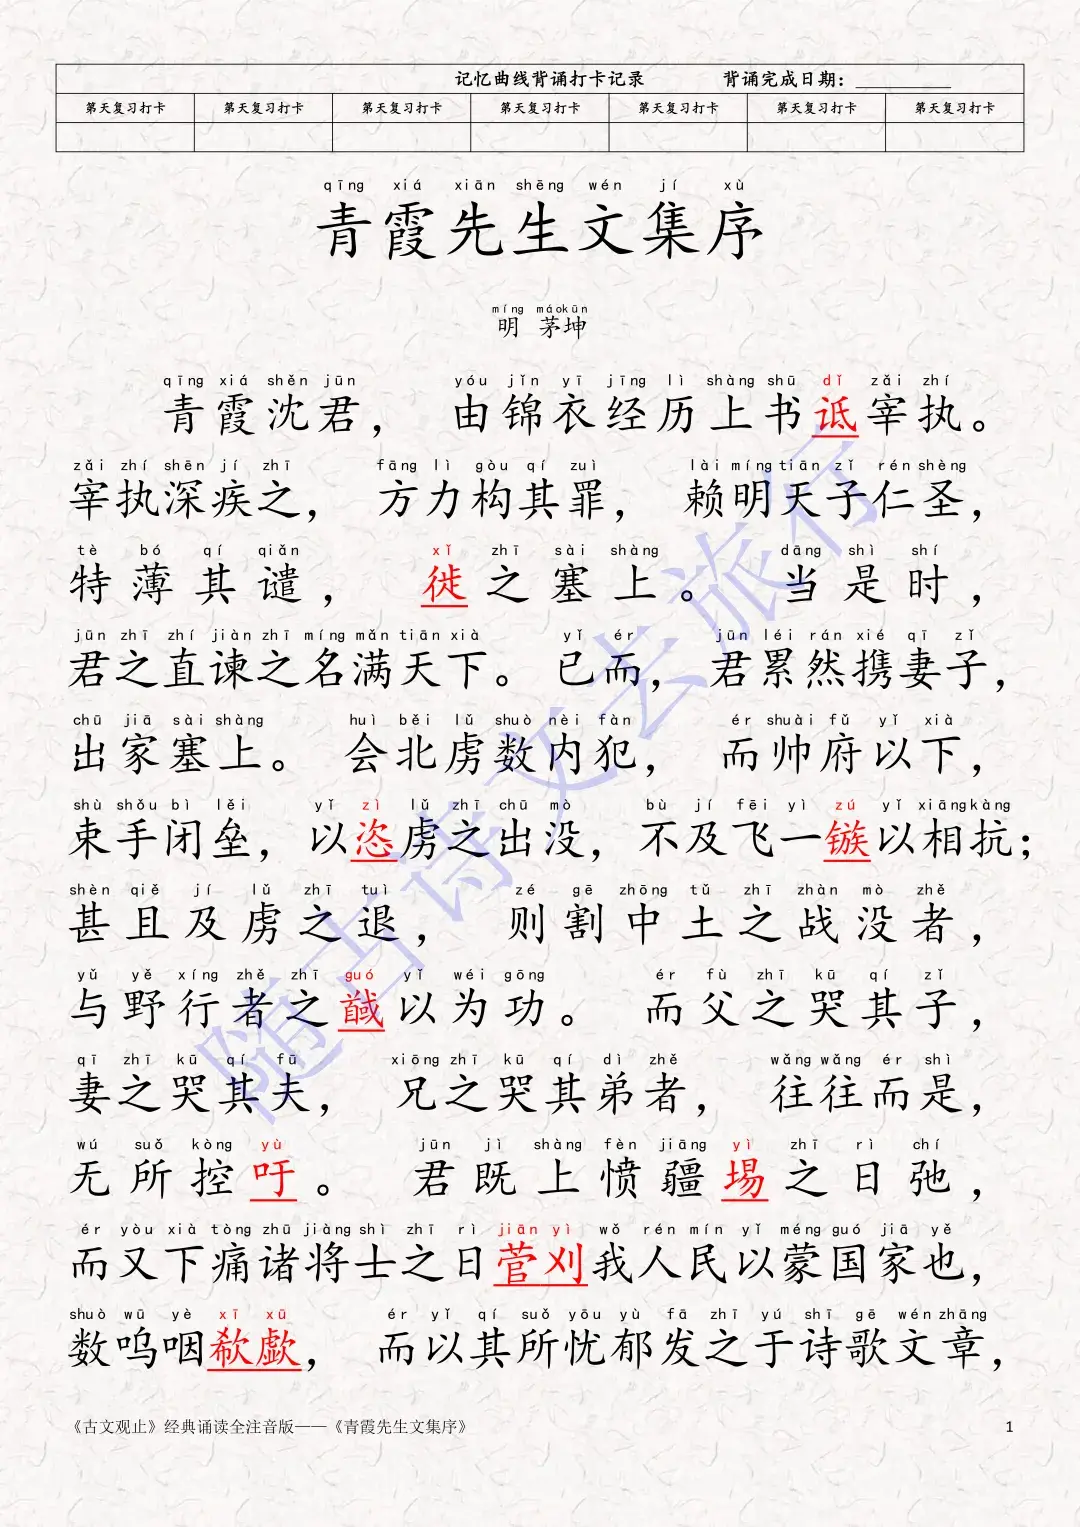 记忆曲线背诵打卡记录 背诵完成日期：
第天复习打卡 第天复习打卡 第天复习打卡 第天复习打卡 第天复习打卡 第天复习打卡 第天复习打卡
qīng xiá xiān shēng wén jí xù
青霞先生文集序
míng máokūn
明 茅坤
qīng xiá shěn jūn yóu jǐn yī jīng lì shàng shū dǐ zǎi zhí
青霞沈君， 由锦衣经历上书诋宰执。
zǎi zhí shēn jí zhī fāng lì gòu qí zuì lài míng tiān zǐ rén shèng
宰执深疾之， 方力构其罪， 赖明天子仁圣，
tè bó qí qiǎn xǐ zhī sài shàng dāng shì shí
特薄其谴， 徙之塞上。 当是时，
jūn zhī zhí jiàn zhī míng mǎn tiān xià yǐ ér jūn léi rán xié qī zǐ
君之直谏之名满天下。 已而， 君累然携妻子，
chū jiā sài shàng huì běi lǔ shuò nèi fàn ér shuài fǔ yǐ xià
出家塞上。 会北虏数内犯， 而帅府以下，
shù shǒu bì lěi yǐ zì lǔ zhī chū mò bù jí fēi yì zú yǐ xiāng kàng
束手闭垒， 以恣虏之出没， 不及飞一镞以相抗；
shèn qiě jí lǔ zhī tuì zé gē zhōng tǔ zhī zhàn mò zhě
甚且及虏之退， 则割中土之战没者，
yǔ yě xíng zhě zhī guó yǐ wéi gōng ér fù zhī kū qí zǐ
与野行者之馘以为功。 而父之哭其子，
qī zhī kū qí fū xiōng zhī kū qí dì zhě wǎng wǎng ér shì
妻之哭其夫， 兄之哭其弟者， 往往而是，
wú suǒ kòng yù jūn jì shàng fèn jiāng yì zhī rì chí
无所控吁。 君既上愤疆埸之日弛，
ér yòu xià tòng zhū jiàng shì zhī rì jiān yì wǒ rén mín yǐ méng guó jiā yě
而又下痛诸将士之日菅刈我人民以蒙国家也，
shuò wū yè xī xū ér yǐ qí suǒ yōu yù fā zhī yú shī gē wén zhāng
数呜咽欷歔， 而以其所忧郁发之于诗歌文章，
《古文观止》经典诵读全注音版——《青霞先生文集序》 1
随古诗文去旅行